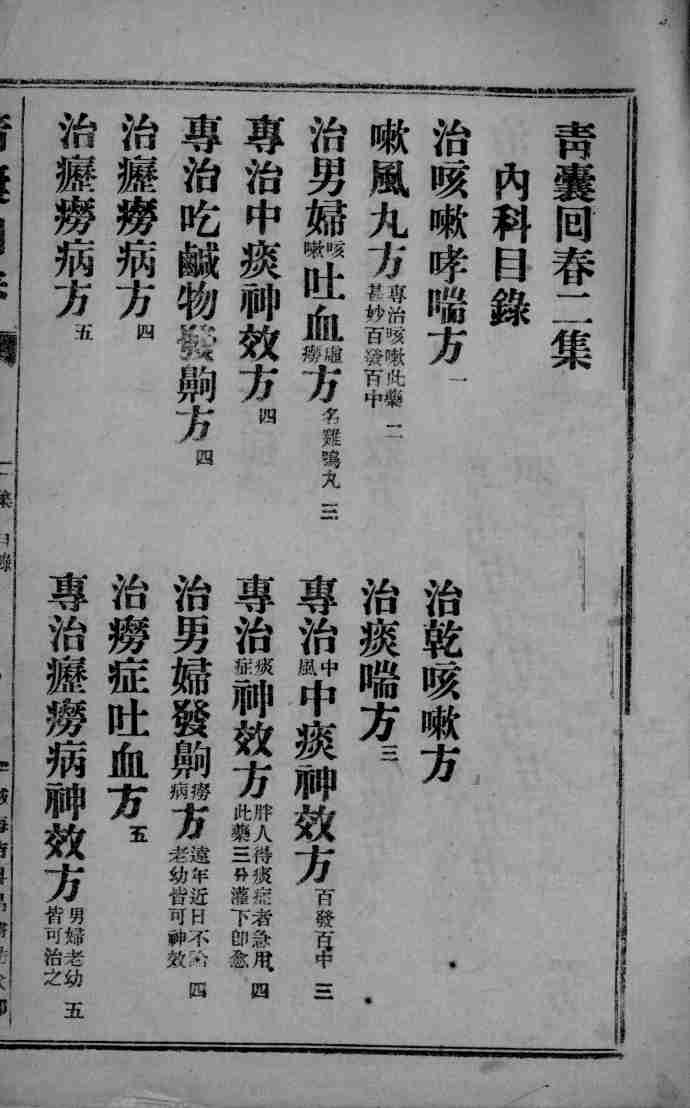 青囊回春二集
內科目錄
治咳嗽哮喘方 一
治乾咳嗽方
嗽風丸方 專治咳嗽此藥甚妙百發百中 二
治痰喘方 三
治男婦咳嗽吐血虛癆方 名雞鳴丸 三
專治中風中痰神效方 百發百中 三
專治中痰神效方 四
專治痰症神效方 胖人得痰症者急用此藥三分灌下卽愈 四
專治吃鹹物發齁方 四
治男婦發齁癆病方 遠年近日不論老幼皆可神效 四
治癧癆病方 四
治癆症吐血方 五
治癧癆病方 五
專治癧癆病神效方 男婦老幼皆可治之 五
二集目錄